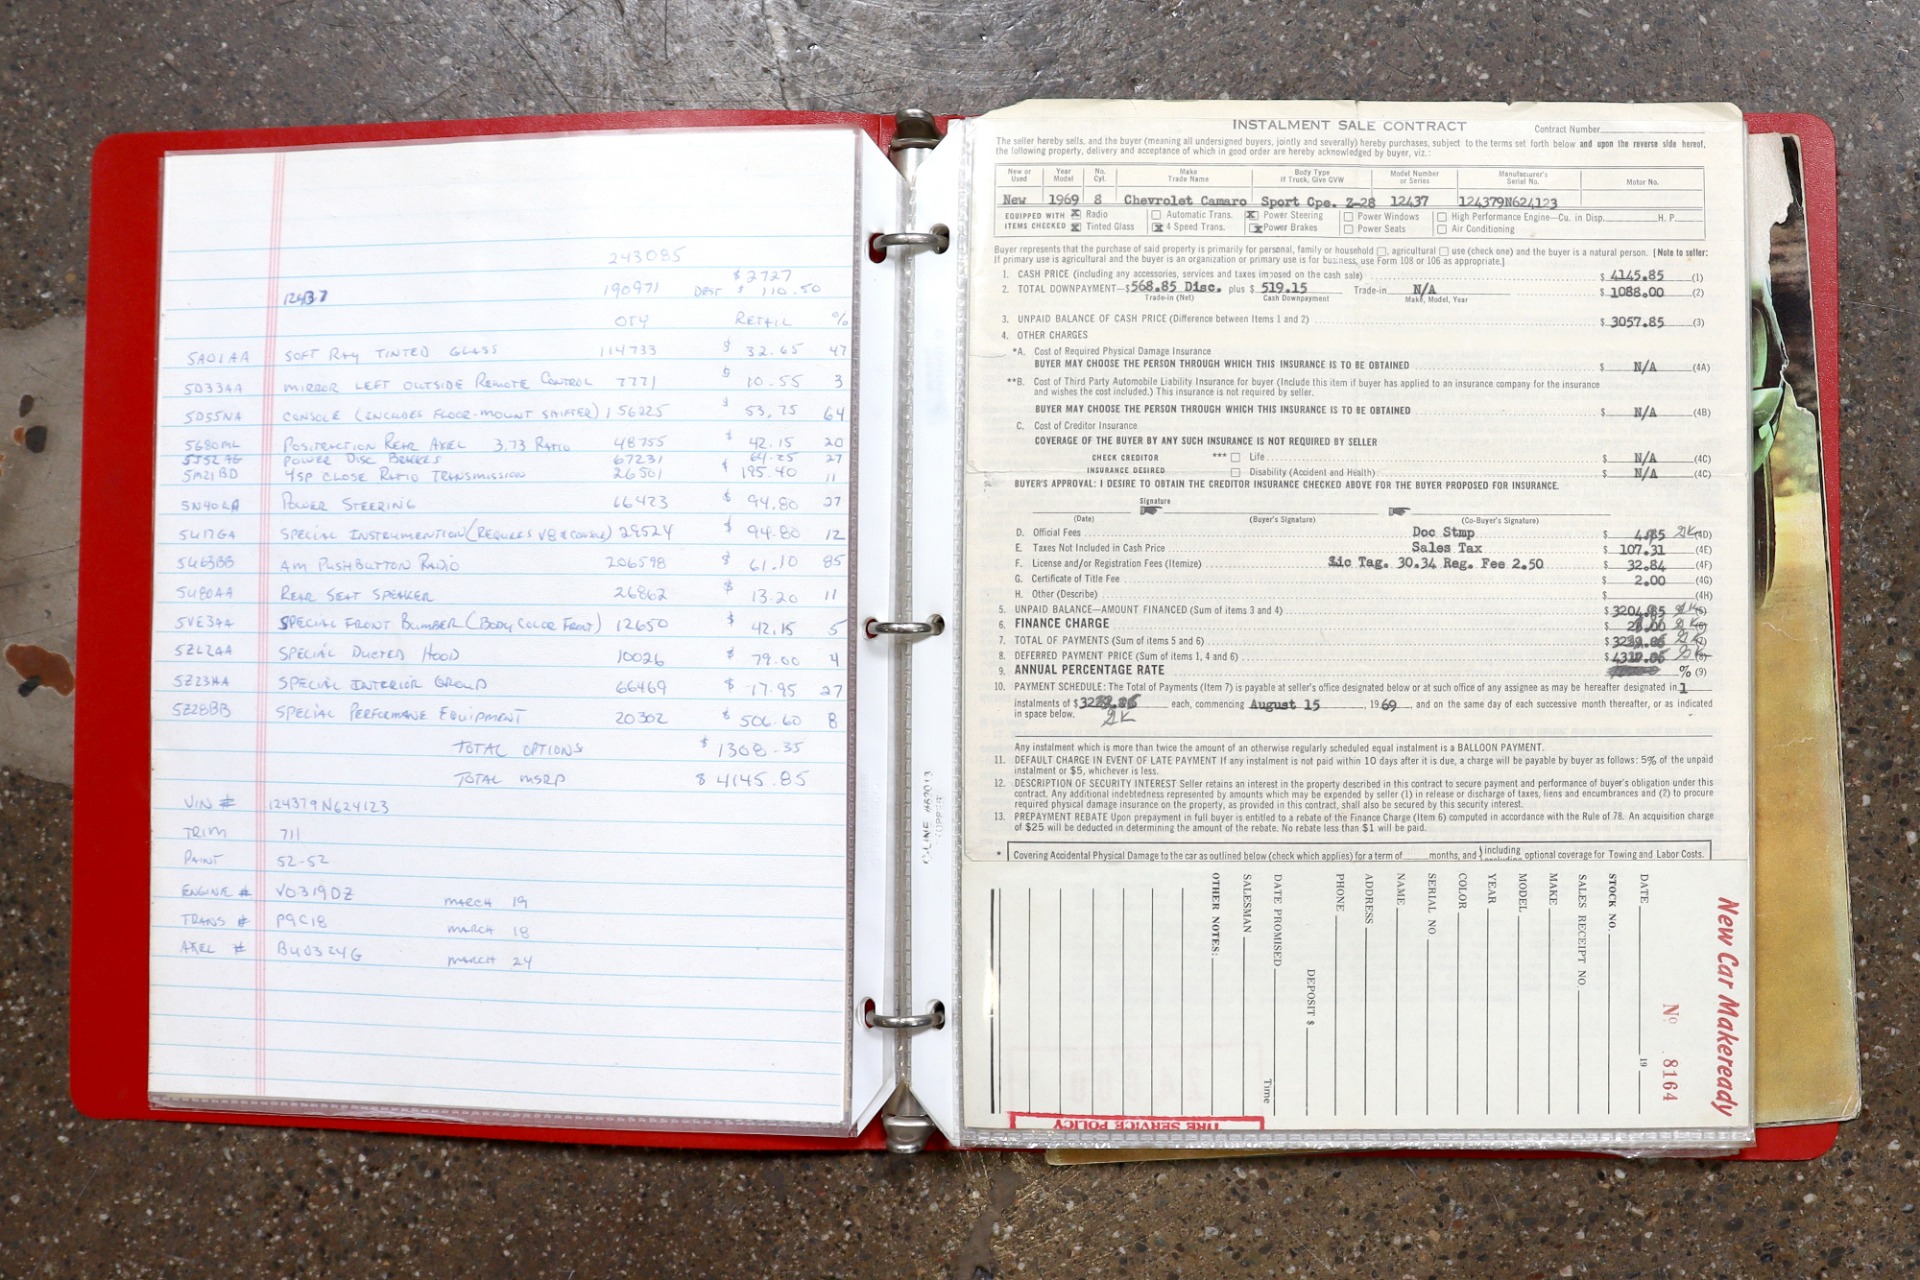 243085
$ 2727
12437 190971 DEST $ 110.50
QTY RETAIL %
5A01AA SOFT RAY TINTED GLASS 114733 $ 32.65 47
5D33AA MIRROR LEFT OUTSIDE REMOTE CONTROL 7771 $ 10.55 3
5D55NA CONSOLE (INCLUDES FLOOR-MOUNT SHIFTER) 156225 $ 53.75 64
5G80ML POSITRACTION REAR AXEL 3.73 RATIO 48755 $ 42.15 20
5J52AG POWER DISC BRAKES 67231 64.25 27
5M21BD 4SP CLOSE RATIO TRANSMISSION 26501 $ 195.40 11
5N40LA POWER STEERING 66423 $ 94.80 27
5U17GA SPECIAL INSTRUMENTION (REQUIRES V8 & CONSOLE) 29524 $ 94.80 12
5U63BB AM PUSHBUTTON RADIO 206598 $ 61.10 85
5U80AA REAR SEAT SPEAKER 26862 $ 13.20 11
5VE3AA SPECIAL FRONT BUMBER (BODY COLOR FRONT) 12650 $ 42.15 5
5ZL2AA SPECIAL DUCTED HOOD 10026 $ 79.00 4
5Z23HA SPECIAL INTERIOR GROUP 66469 $ 17.95 27
5Z28BB SPECIAL PERFORMANE EQUIPMENT 20302 $ 506.60 8
TOTAL OPTIONS $ 1308.35
TOTAL MSRP $ 4145.85
VIN # 124379N624123
TRIM 711
PAINT 52-52
ENGINE # V0319DZ MARCH 19
TRANS # P9C18 MARCH 18
AXEL # BU0324G MARCH 24
INSTALMENT SALE CONTRACT Contract Number
The seller hereby sells, and the buyer (meaning all undersigned buyers, jointly and severally) hereby purchases, subject to the terms set forth below and upon the reverse side hereof,
the following property, delivery and acceptance of which in good order are hereby acknowledged by buyer, viz.:
New or Used Year Model No. Cyl. Make Trade Name Body Type If Truck, Give GVW Model Number or Series Manufacturer's Serial No. Motor No.
New 1969 8 Chevrolet Camaro Sport Cpe. Z-28 12437 124379N624123
EQUIPPED WITH X Radio Automatic Trans. X Power Steering Power Windows High Performance Engine—Cu. in Disp. H. P.
ITEMS CHECKED X Tinted Glass X 4 Speed Trans. X Power Brakes Power Seats Air Conditioning
Buyer represents that the purchase of said property is primarily for personal, family or household □, agricultural □ use (check one) and the buyer is a natural person. [Note to seller:
If primary use is agricultural and the buyer is an organization or primary use is for business, use Form 108 or 106 as appropriate.]
1. CASH PRICE (including any accessories, services and taxes imposed on the cash sale) $ 4145.85 (1)
2. TOTAL DOWNPAYMENT—$568.85 Disc. plus $ 519.15 Trade-in N/A $ 1088.00 (2)
Trade-in (Net) Cash Downpayment Make, Model, Year
3. UNPAID BALANCE OF CASH PRICE (Difference between Items 1 and 2) $ 3057.85 (3)
4. OTHER CHARGES
*A. Cost of Required Physical Damage Insurance
BUYER MAY CHOOSE THE PERSON THROUGH WHICH THIS INSURANCE IS TO BE OBTAINED $ N/A (4A)
**B. Cost of Third Party Automobile Liability Insurance for buyer (Include this item if buyer has applied to an insurance company for the insurance
and wishes the cost included.) This insurance is not required by seller.
BUYER MAY CHOOSE THE PERSON THROUGH WHICH THIS INSURANCE IS TO BE OBTAINED $ N/A (4B)
C. Cost of Creditor Insurance
COVERAGE OF THE BUYER BY ANY SUCH INSURANCE IS NOT REQUIRED BY SELLER
CHECK CREDITOR *** □ Life $ N/A (4C)
INSURANCE DESIRED □ Disability (Accident and Health) $ N/A (4C)
BUYER'S APPROVAL: I DESIRE TO OBTAIN THE CREDITOR INSURANCE CHECKED ABOVE FOR THE BUYER PROPOSED FOR INSURANCE.
Signature
(Date) (Buyer's Signature) (Co-Buyer's Signature)
D. Official Fees Doc Stmp $ (4D)
E. Taxes Not Included in Cash Price Sales Tax $ 107.31 (4E)
F. License and/or Registration Fees (Itemize) Lic Tag. 30.34 Reg. Fee 2.50 $ 32.84 (4F)
G. Certificate of Title Fee $ 2.00 (4G)
H. Other (Describe) $ (4H)
5. UNPAID BALANCE—AMOUNT FINANCED (Sum of items 3 and 4) $
6. FINANCE CHARGE $
7. TOTAL OF PAYMENTS (Sum of items 5 and 6) $
8. DEFERRED PAYMENT PRICE (Sum of items 1, 4 and 6) $
9. ANNUAL PERCENTAGE RATE % (9)
10. PAYMENT SCHEDULE: The Total of Payments (Item 7) is payable at seller's office designated below or at such office of any assignee as may be hereafter designated in 1
instalments of $ each, commencing August 15, 1969, and on the same day of each successive month thereafter, or as indicated
in space below.
Any instalment which is more than twice the amount of an otherwise regularly scheduled equal instalment is a BALLOON PAYMENT.
11. DEFAULT CHARGE IN EVENT OF LATE PAYMENT If any instalment is not paid within 10 days after it is due, a charge will be payable by buyer as follows: 5% of the unpaid
instalment or $5, whichever is less.
12. DESCRIPTION OF SECURITY INTEREST Seller retains an interest in the property described in this contract to secure payment and performance of buyer's obligation under this
contract. Any additional indebtedness represented by amounts which may be expended by seller (1) in release or discharge of taxes, liens and encumbrances and (2) to procure
required physical damage insurance on the property, as provided in this contract, shall also be secured by this security interest.
13. PREPAYMENT REBATE Upon prepayment in full buyer is entitled to a rebate of the Finance Charge (Item 6) computed in accordance with the Rule of 78. An acquisition charge
of $25 will be deducted in determining the amount of the rebate. No rebate less than $1 will be paid.
* Covering Accidental Physical Damage to the car as outlined below (check which applies) for a term of months, and {including optional coverage for Towing and Labor Costs.
New Car Makeready
No 8164
DATE 19
STOCK NO.
SALES RECEIPT NO
MAKE
MODEL
YEAR
COLOR
SERIAL NO
NAME
ADDRESS
PHONE
DEPOSIT $
DATE PROMISED Time
SALESMAN
OTHER NOTES:
TIRE SERVICE POLICY